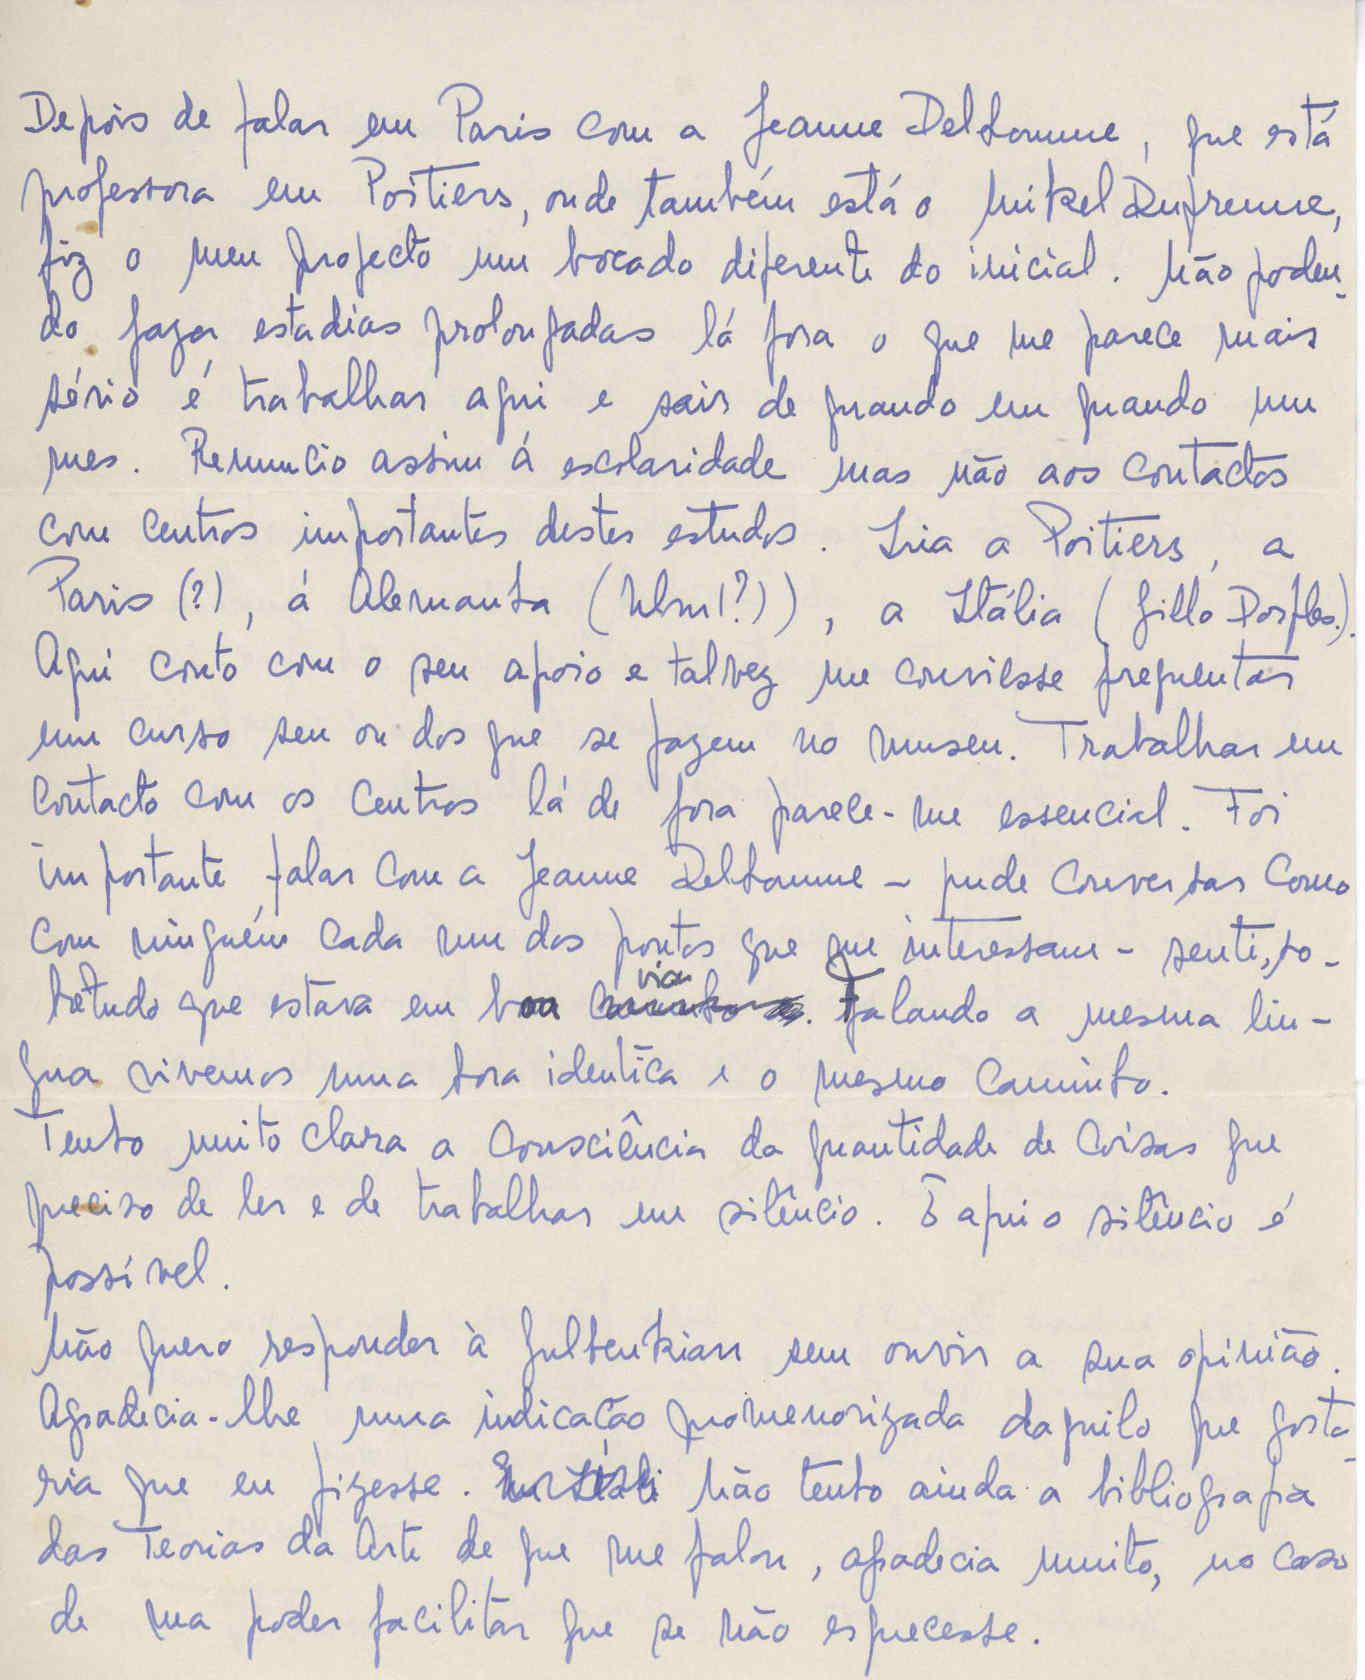 Depois de falar em Paris com a Jeanne Delhomme, que está
professora em Poitiers, onde também está o Mikel Dufrenne,
fiz o meu projecto um bocado diferente do inicial. Não poden-
do fazer estadias prolongadas lá fora o que me parece mais
sério é trabalhar aqui e sair de quando em quando um
mes. Renuncio assim á escolaridade mas não aos contactos
com centros importantes destes estudos. Iria a Poitiers, a
Paris (?), á Alemanha (Ulm(?)), a Itália (Gillo Dorfles.).
Aqui conto com o seu apoio e talvez me conviesse frequentar
um curso seu ou dos que se fazem no museu. Trabalhar em
contacto com os centros lá de fora parece-me essencial. Foi
importante falar com a Jeanne Delhomme – pude conversar como
com ninguém cada um dos pontos que me interessam – senti, so-
bretudo que estava em boa via. Falando a mesma lin-
gua vivemos uma hora identica e o mesmo caminho.
Tenho muito clara a consciência da quantidade de coisas que
preciso de ler e de trabalhar em silêncio. E aqui o silêncio é
possível.
Não quero responder à Gulbenkian sem ouvir a sua opinião.
Agradecia-lhe uma indicação promenorizada daquilo que gosta-
ria que eu fizesse. Não tenho ainda a bibliografia
das Teorias da Arte de que me falou, agradecia muito, no caso
de ma poder facilitar que se não esquecesse.